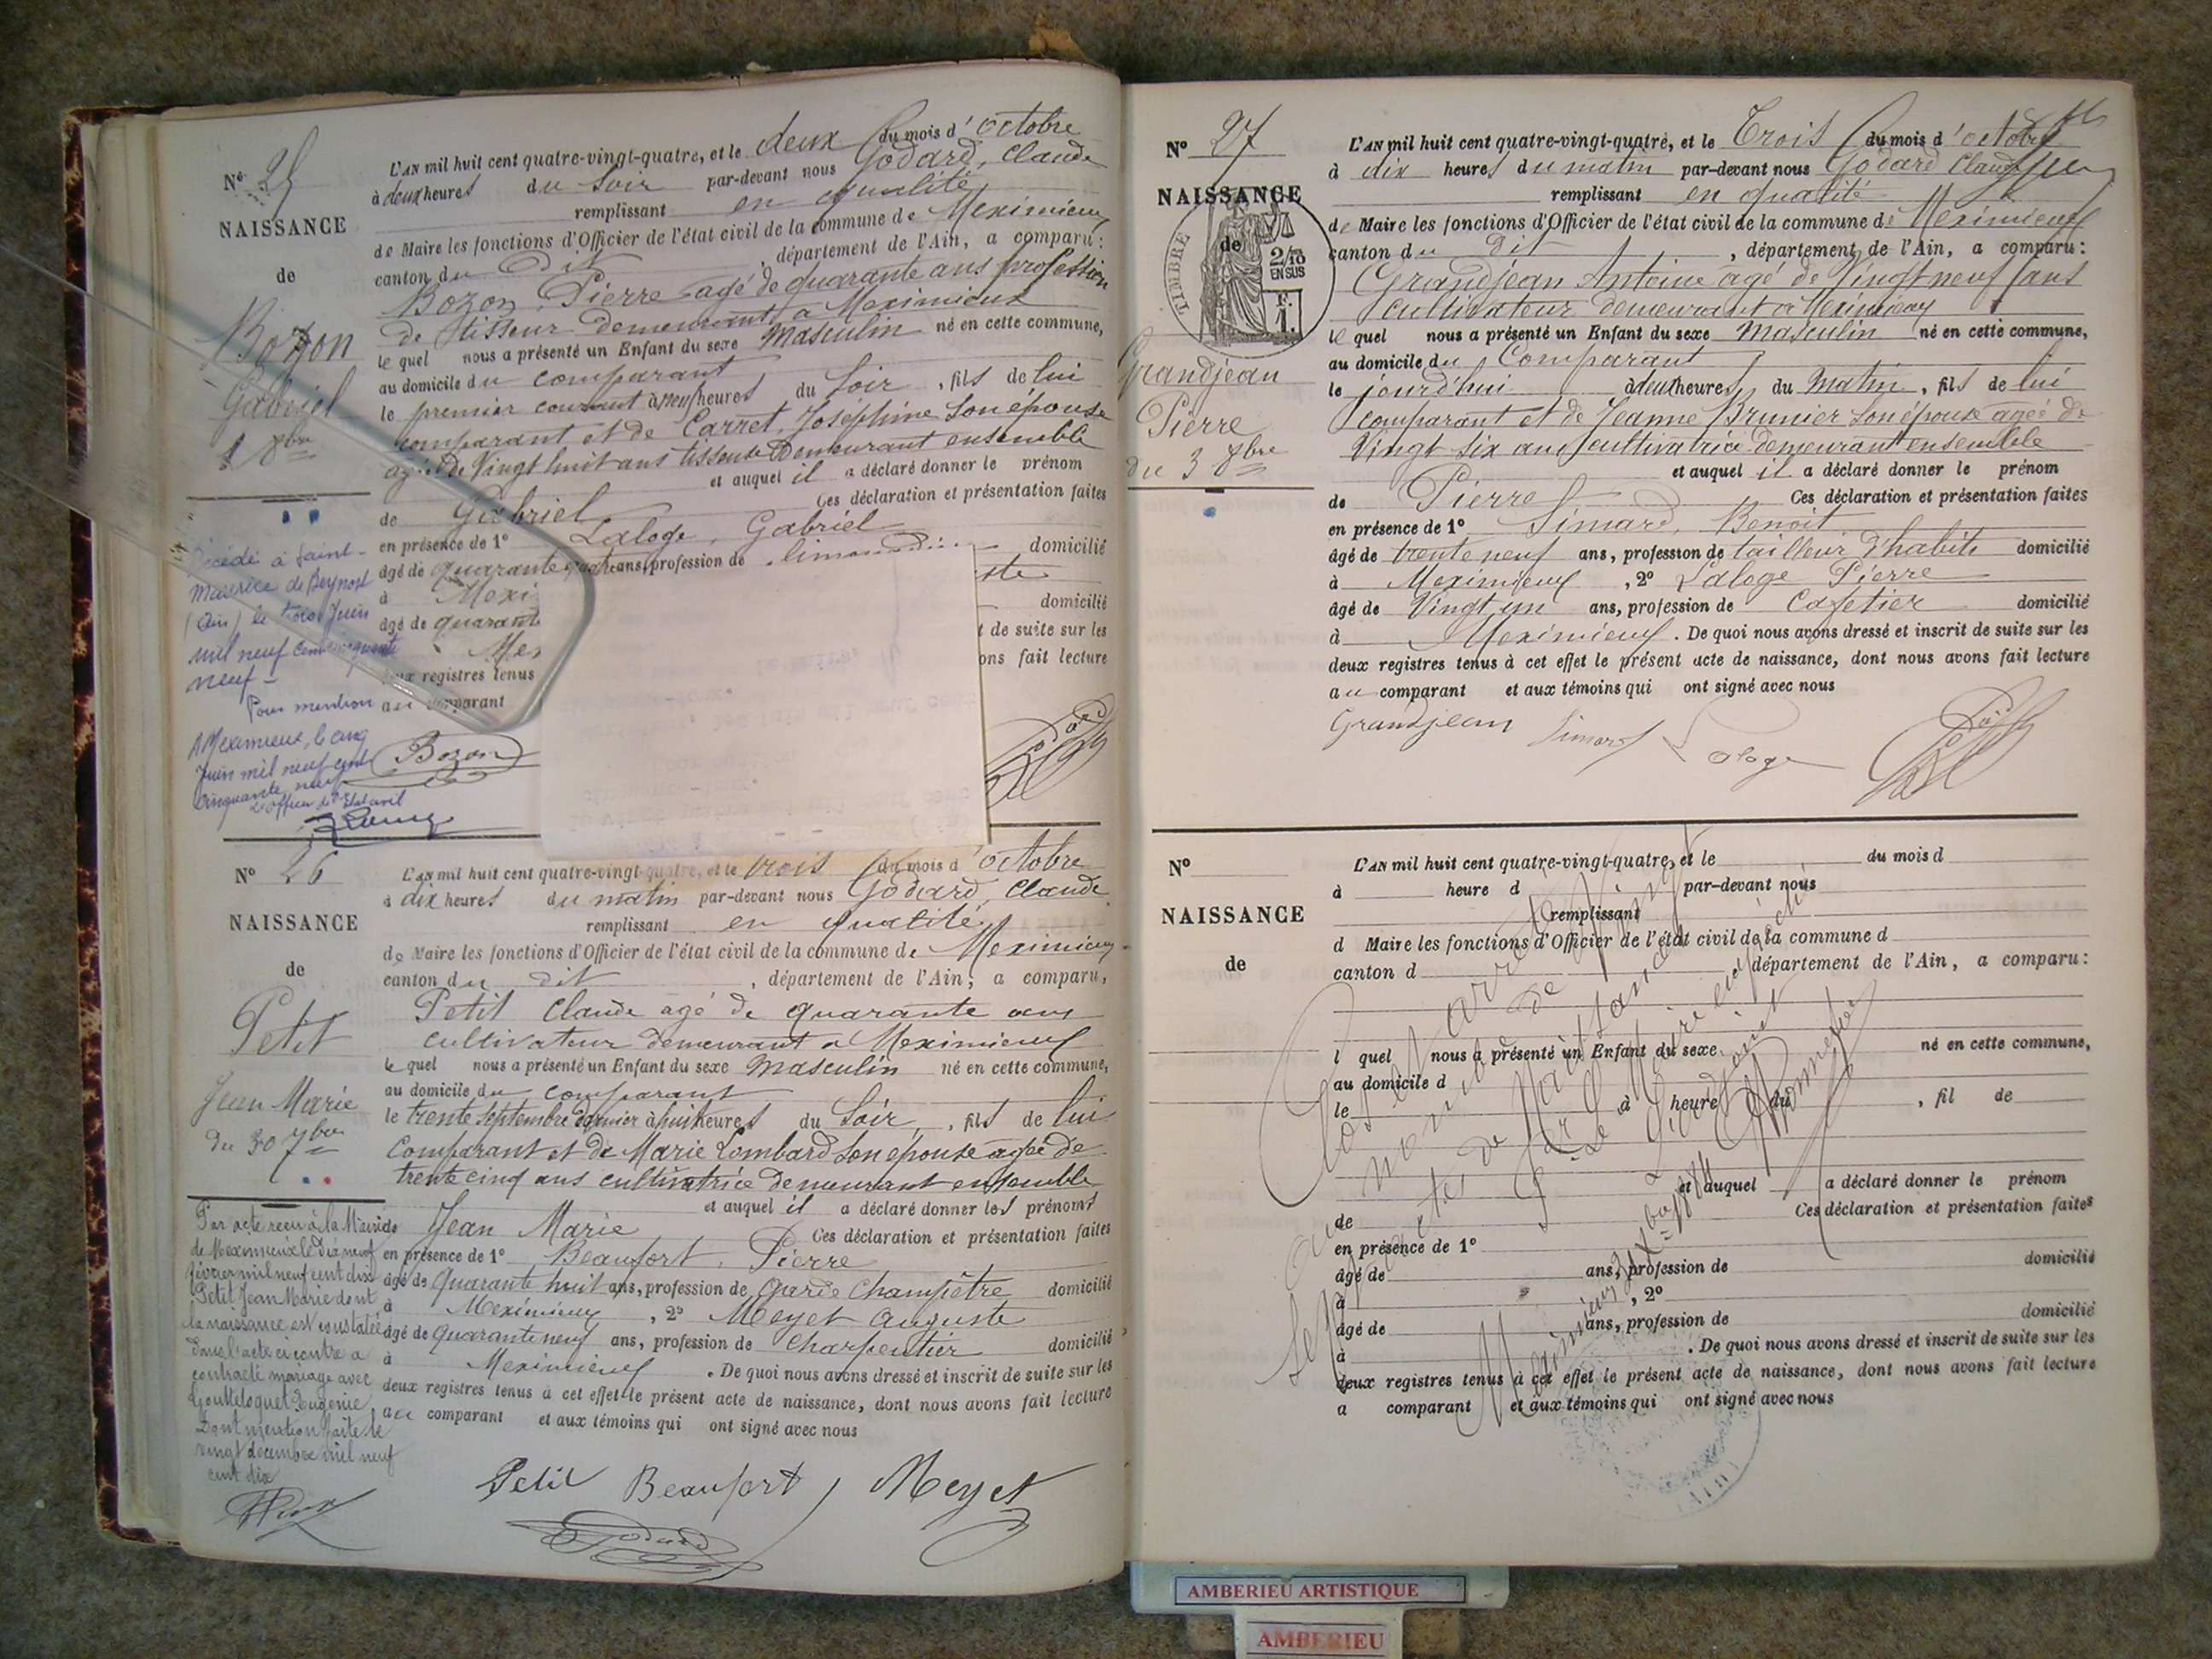 Nº 25
NAISSANCE
de
Bozon
Gabriel
1 8bre
Décédé à Saint-
Maurice de Beynost
(Ain) le trois Juin
mil neuf cent cinquante
neuf -
Pour mention
A Meximieux, le cinq
Juin mil neuf cent
cinquante neuf
L'officier de l'Etat civil
L'AN mil huit cent quatre-vingt-quatre, et le deux du mois d'octobre
à deux heures du soir par-devant nous Godard, Claude
remplissant en qualité
de Maire les fonctions d'Officier de l'état civil de la commune de Meximieux
canton du dit, département de l'Ain, a comparu:
Bozon Pierre agé de quarante ans profession
de tisseur demeurant à Meximieux
le quel nous a présenté un Enfant du sexe Masculin né en cette commune,
au domicile du comparant
le premier courant à neuf heures du soir, fils de lui
comparant et de Carret, Joséphine son épouse
agée de Vingt huit ans tisseuse demeurant ensemble
et auquel il a déclaré donner le prénom
de Gabriel Ces déclaration et présentation faites
en présence de 1º Laloge, Gabriel
âgé de quarante quatre ans, profession de domicilié
à Mexi ste
âgé de quarant domicilié
à Mex t de suite sur les
registres tenus ons fait lecture
au comparant
Bozon
Nº 26
NAISSANCE
de
Petit
Jean Marie
du 30 7bre
Par acte reçu à la Mairie
de Meximieux le dix neuf
février mil neuf cent dix
Petit Jean Marie dont
la naissance est constatée
dans l'acte ci contre a
contracté mariage avec
Goutteloquet Eugénie
Dont mention faite le
vingt décembre mil neuf
cent dix
L'AN mil huit cent quatre-vingt-quatre, et le trois du mois d'octobre
à dix heures du matin par-devant nous Godard, Claude
remplissant en qualité
de Maire les fonctions d'Officier de l'état civil de la commune de Meximieux
canton du dit, département de l'Ain, a comparu,
Petit Claude agé de quarante ans
cultivateur demeurant à Meximieux
le quel nous a présenté un Enfant du sexe Masculin né en cette commune,
au domicile du comparant
le trente septembre dernier à huit heures du Soir, fils de lui
Comparant et de Marie Lombard son épouse agée de
trente cinq ans cultivatrice demeurant ensemble
et auquel il a déclaré donner les prénoms
de Jean Marie Ces déclaration et présentation faites
en présence de 1º Beaufort, Pierre
âgé de Quarante huit ans, profession de Garde Champêtre domicilié
à Meximieux, 2º Meyet Auguste
âgé de quarante neuf ans, profession de Charpentier domicilié
à Meximieux. De quoi nous avons dressé et inscrit de suite sur les
deux registres tenus à cet effet le présent acte de naissance, dont nous avons fait lecture
au comparant et aux témoins qui ont signé avec nous
Petit Beaufort Meyet
Godard
Nº 27
NAISSANCE
de
TIMBRE
2/10
EN SUS
F.
1.
Grandjean
Pierre
du 3 8bre
L'AN mil huit cent quatre-vingt-quatre, et le Trois du mois d'octobre
à dix heures du matin par-devant nous Godard Claude
remplissant en qualité
de Maire les fonctions d'Officier de l'état civil de la commune de Meximieux
canton du dit, département de l'Ain, a comparu:
Grandjean Antoine agé de Vingt neuf ans
Cultivateur demeurant à Meximieux
le quel nous a présenté un Enfant du sexe Masculin né en cette commune,
au domicile du Comparant
le jourd'hui à deux heures du Matin, fils de lui
comparant et de Jeanne Brunier son épouse agée de
Vingt six ans cultivatrice demeurant ensemble
et auquel il a déclaré donner le prénom
de Pierre Ces déclaration et présentation faites
en présence de 1º Simard, Benoit
âgé de trente neuf ans, profession de tailleur d'habits domicilié
à Meximieux, 2º Laloge Pierre
âgé de Vingt un ans, profession de Cafetier domicilié
à Meximieux. De quoi nous avons dressé et inscrit de suite sur les
deux registres tenus à cet effet le présent acte de naissance, dont nous avons fait lecture
au comparant et aux témoins qui ont signé avec nous
Grandjean Simard Laloge
Nº
NAISSANCE
de
L'AN mil huit cent quatre-vingt-quatre, et le du mois d
à heure d par-devant nous
remplissant
d Maire les fonctions d'Officier de l'état civil de la commune d
canton d, département de l'Ain, a comparu:
l quel nous a présenté un Enfant du sexe né en cette commune,
au domicile d
le à heure du, fil de
et auquel a déclaré donner le prénom
de Ces déclaration et présentation faites
en présence de 1º
âgé de ans, profession de domicilié
à, 2º
âgé de ans, profession de domicilié
à. De quoi nous avons dressé et inscrit de suite sur les
deux registres tenus à cet effet le présent acte de naissance, dont nous avons fait lecture
a comparant et aux témoins qui ont signé avec nous
Clos et arrêté
au nombre de vingt
sept actes de Naissance
Par le Maire empêché
L'adjoint
Meximieux
AMBERIEU ARTISTIQUE
AMBERIEU